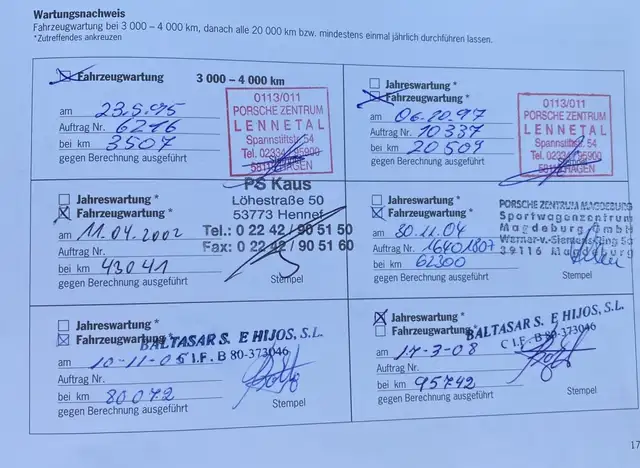 Wartungsnachweis
Fahrzeugwartung bei 3 000 – 4 000 km, danach alle 20 000 km bzw. mindestens einmal jährlich durchführen lassen.
*Zutreffendes ankreuzen
Fahrzeugwartung 3 000 – 4 000 km
am 23.5.95
Auftrag Nr. 6216
bei km 3507
gegen Berechnung ausgeführt
0113/011
PORSCHE ZENTRUM
LENNETAL
Spannstiftstr. 54
Tel. 02334
HAGEN
Jahreswartung *
Fahrzeugwartung *
am 06.10.97
Auftrag Nr. 10337
bei km 20509
gegen Berechnung ausgeführt
0113/011
PORSCHE ZENTRUM
LENNETAL
Spannstiftstr. 54
Tel. 02334
HAGEN
Jahreswartung *
Fahrzeugwartung *
am 11.04.2002
Auftrag Nr.
bei km 43041
gegen Berechnung ausgeführt
PS Kaus
Löhestraße 50
53773 Hennef
Tel.: 0 22 42 / 90 51 50
Fax: 0 22 42 / 90 51 60
Stempel
Jahreswartung *
Fahrzeugwartung *
am 30.11.04
Auftrag Nr. 16401807
bei km 62300
gegen Berechnung ausgeführt
PORSCHE ZENTRUM MAGDEBURG
Sportwagenzentrum
Magdeburg GmbH
39116 Magdeburg
Stempel
Jahreswartung *
Fahrzeugwartung *
am 10-11-05
Auftrag Nr.
bei km 80072
gegen Berechnung ausgeführt
BALTASAR S. E HIJOS, S.L.
C.I.F. B 80-373046
Stempel
Jahreswartung *
Fahrzeugwartung *
am 17-3-08
Auftrag Nr.
bei km 95742
gegen Berechnung ausgeführt
BALTASAR S. E HIJOS, S.L.
C.I.F. B 80-373046
Stempel
17